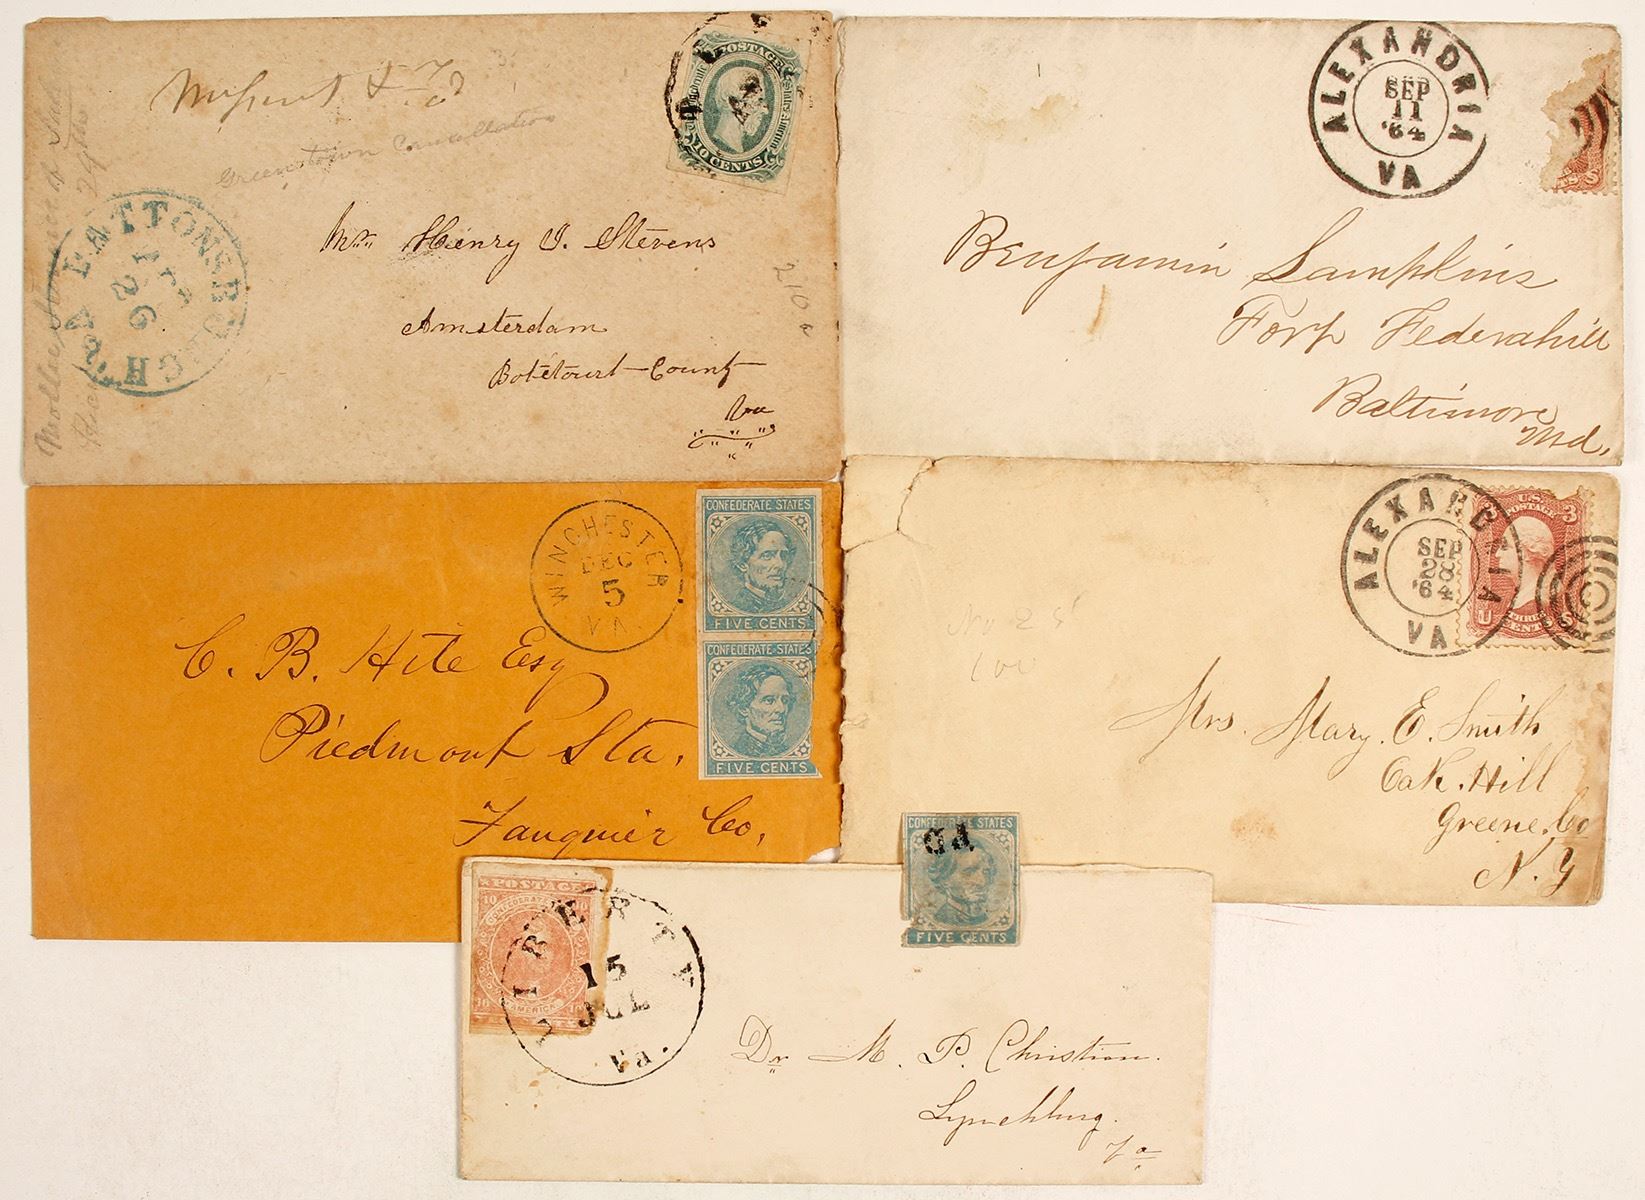 Greenstown Cancellation
POSTAGE
10 CENTS
PATTONSBURGH
26
Va
Mr. Henry J. Stevens
Amsterdam
Botetourt County
Va
210
ALEXANDRIA
SEP
11
'64
VA
Benjamin Lampkins
Fort Federahill
Baltimore
Md.
WINCHESTER
DEC
5
VA.
CONFEDERATE STATES
FIVE CENTS
CONFEDERATE STATES
FIVE CENTS
C. B. Hite Esq
Piedmont Sta.
Fauquier Co.
ALEXANDRIA
SEP
28
'64
VA
U.S.
POSTAGE
3
CENTS
No 25
100
Mrs. Mary. E. Smith
Oak. Hill
Greene. Co
N. Y
CONFEDERATE STATES
FIVE CENTS
POSTAGE
10 10
AMERICA
10 10
LIBERTY
15
JUL
Va.
Dr M. P. Christian.
Lynchburg.
Va